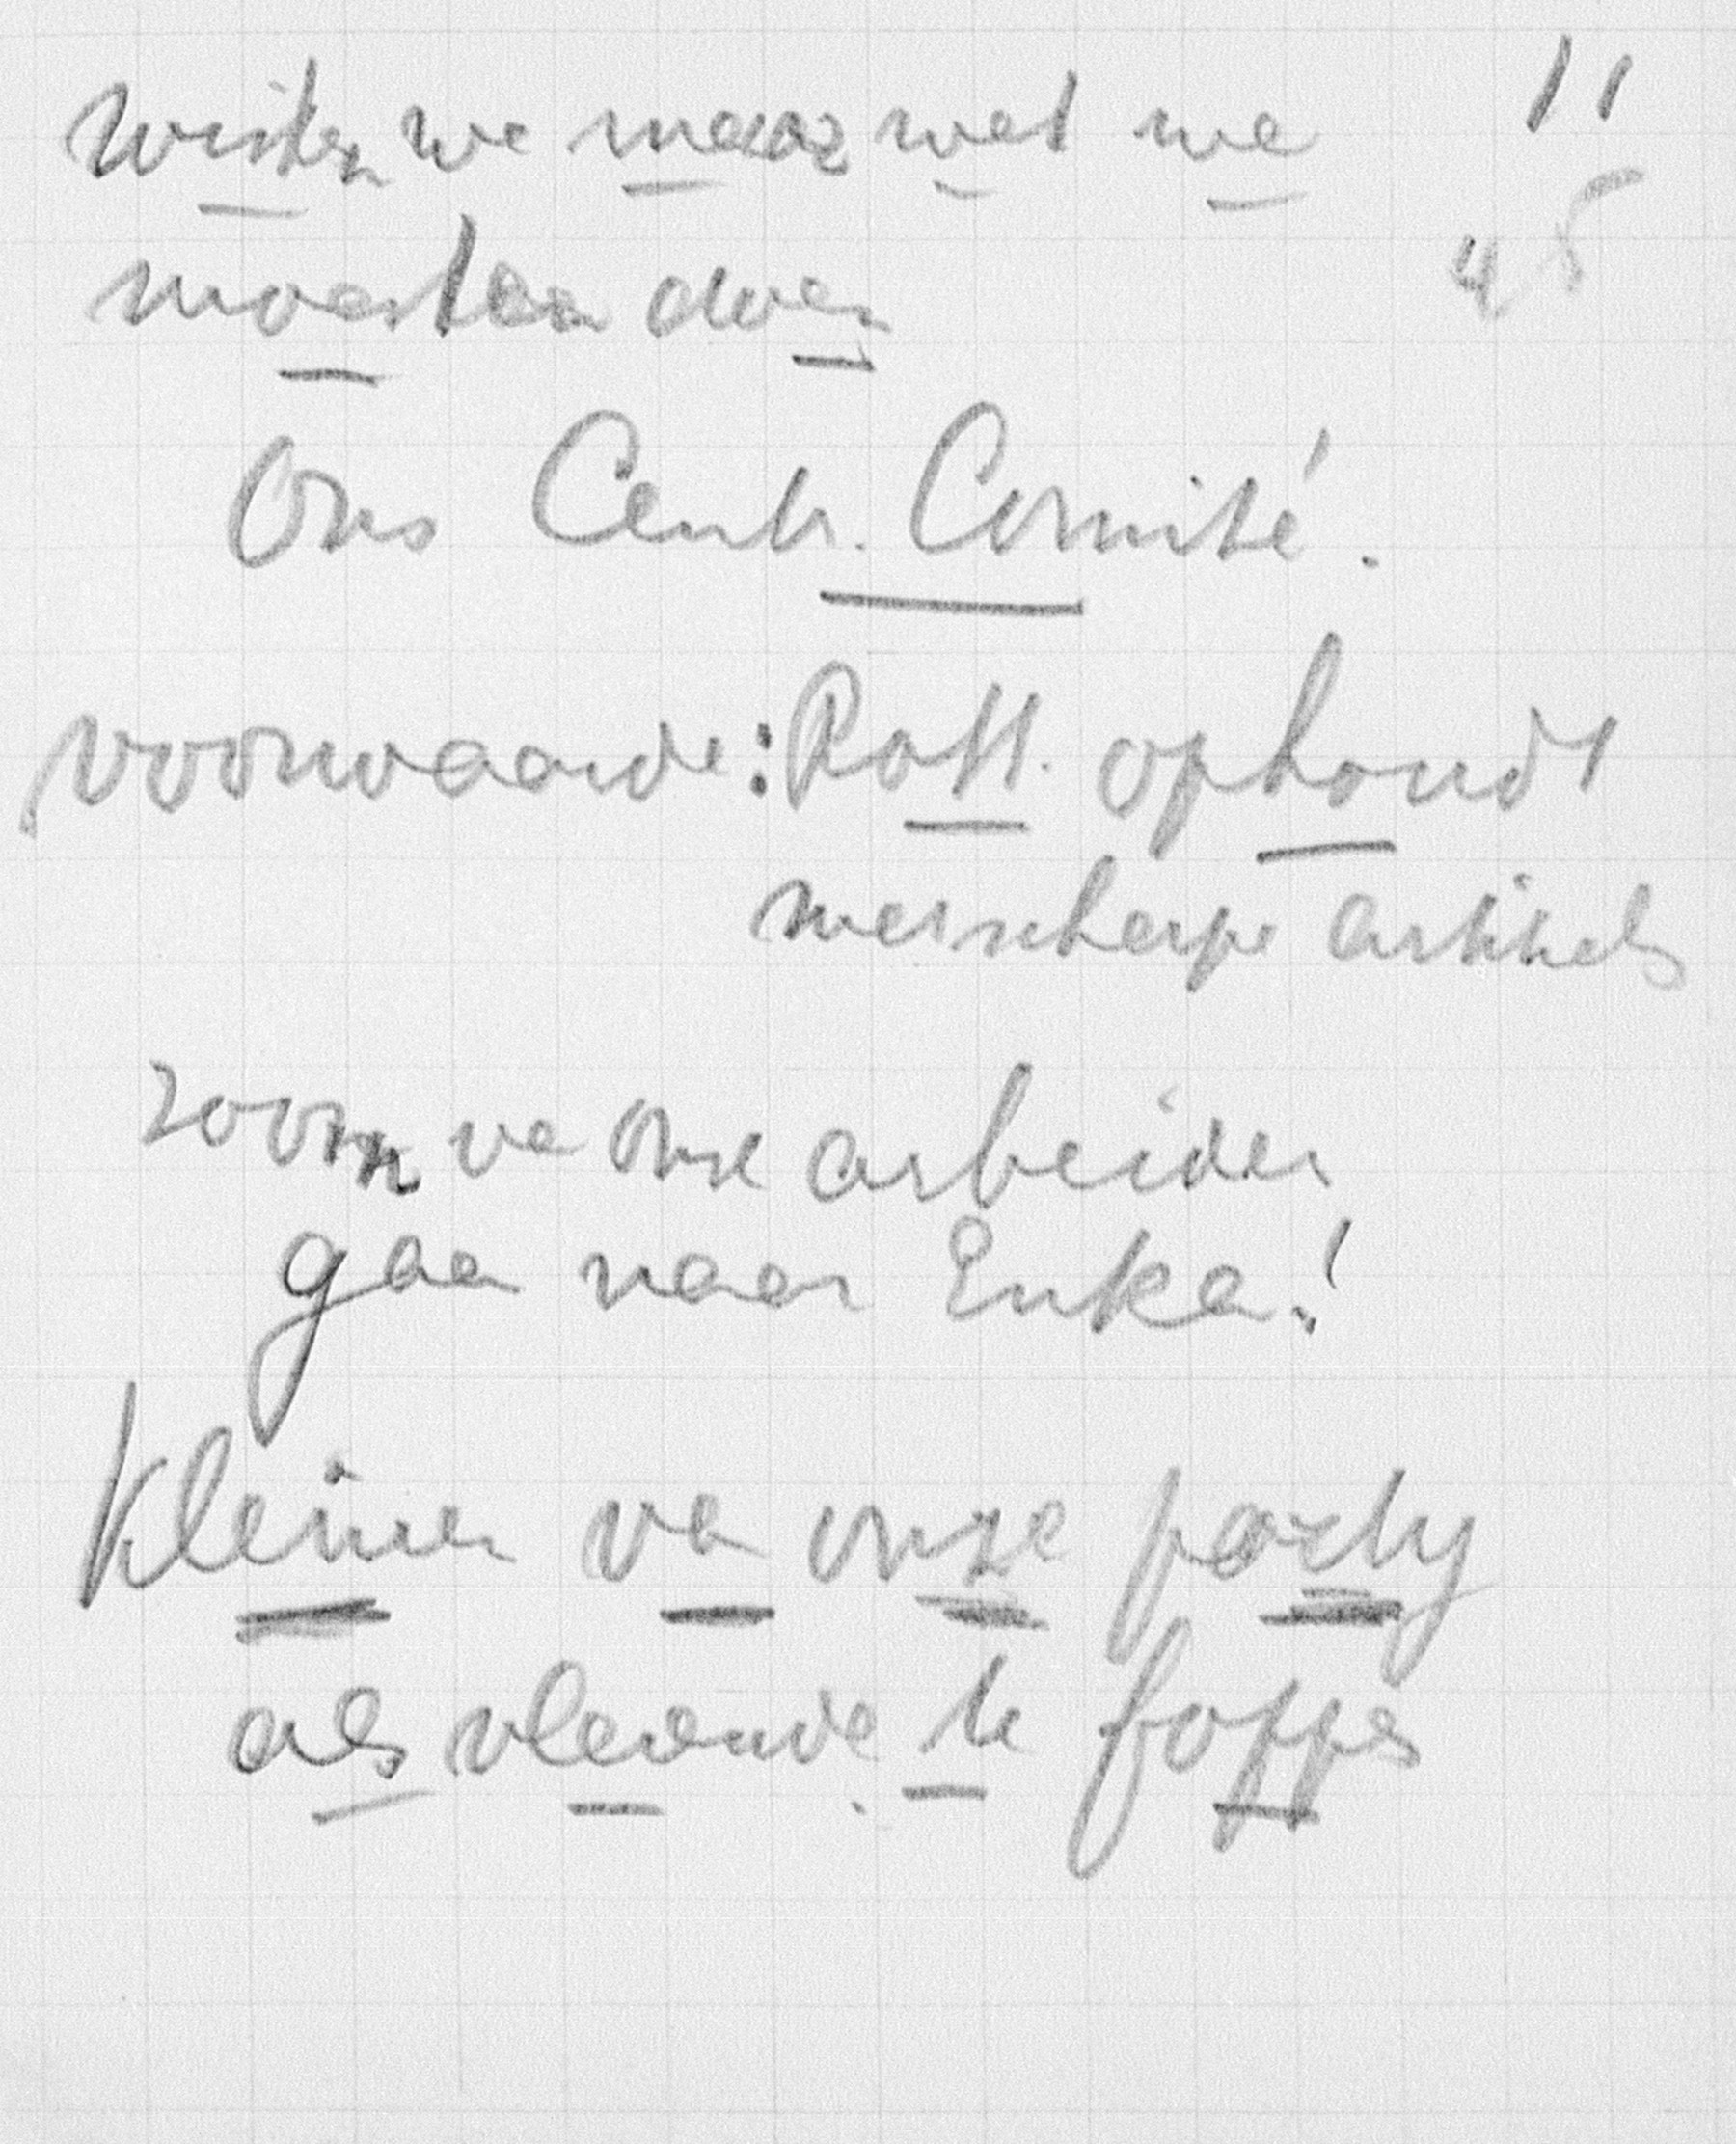 wisten we maar wat we 11
moesten doen 45
Ons Centr. Comité.
voorwaarde: Rott. ophoudt
messcherpe artikels
zoon va onze arbeider
gaa naar Enka!
Kleine va onze party
als vleiende te foppe